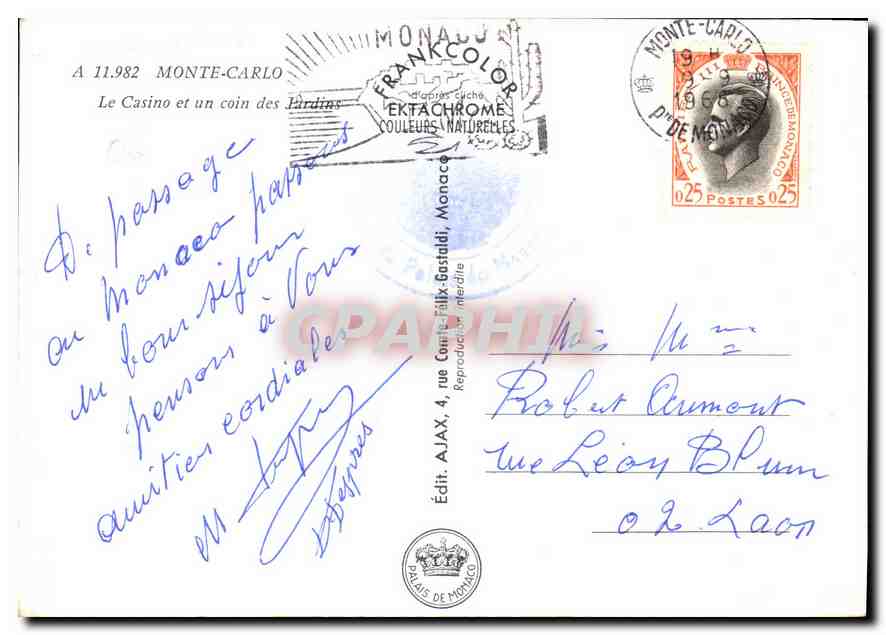 A 11.982 MONTE-CARLO
Le Casino et un coin des Jardins
MONACO
FRANKCOLOR
d'après cliché
EKTACHROME
COULEURS NATURELLES
MONTE-CARLO
19 H
9-9
1968
Pté DE MONACO
RAINIER III PRINCE DE MONACO
0.25 POSTES 0.25
De passage
au Monaco passons
un bon séjour
pensons à Vous
amitiés cordiales
M
Despres
Édit. AJAX, 4, rue Comte-Félix-Gastaldi, Monaco
Reproduction interdite
PALAIS DE MONACO
CPAPHIL
Mme
Robert Aumont
rue Léon Blum
02 Laon